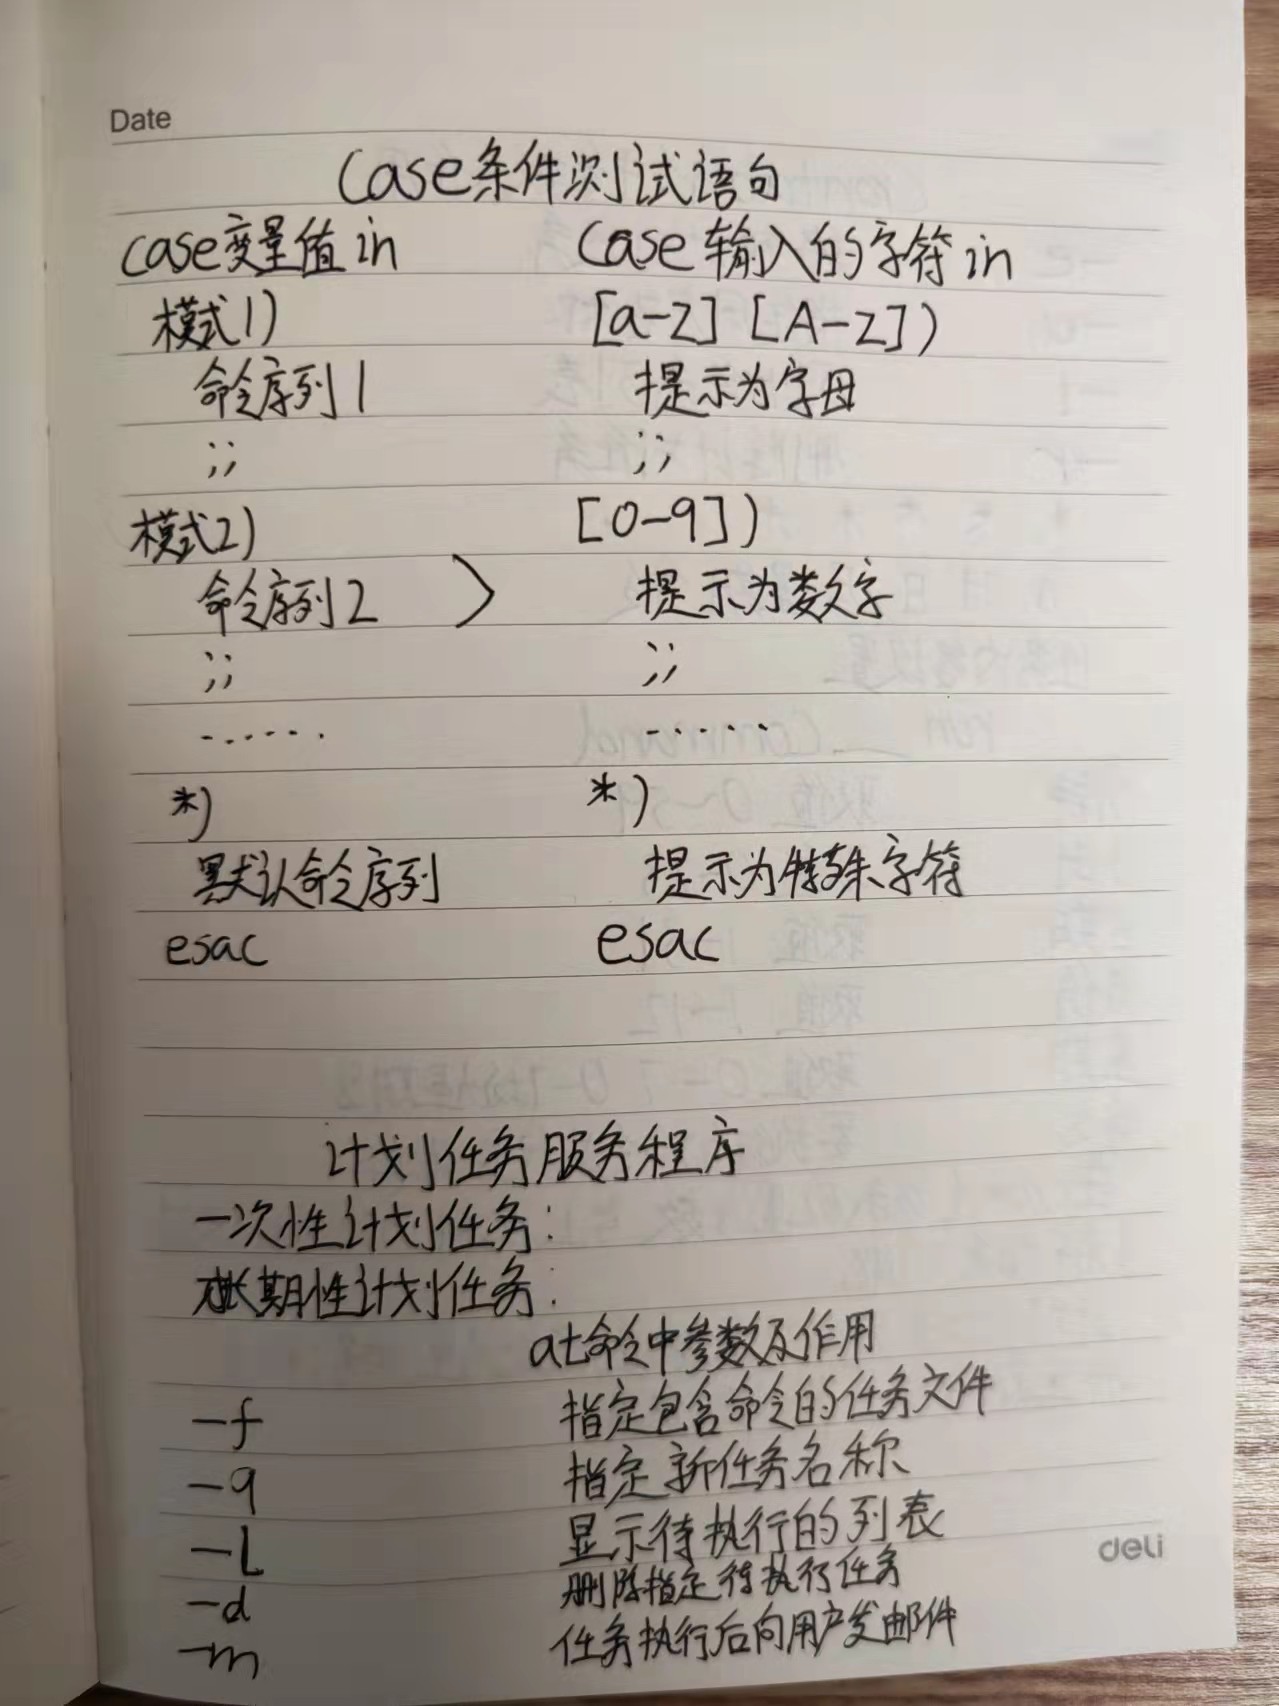 Date
Case条件测试语句
case变量值 in Case 输入的字符 in
模式1) [a-z] [A-Z])
命令序列1 提示为字母
;; ;;
模式2) [0-9])
命令序列2 > 提示为数字
;; ;;
...... ......
*) *)
默认命令序列 提示为特殊字符
esac esac
计划任务服务程序
一次性计划任务:
长期性计划任务:
at命令中参数及作用
-f 指定包含命令的任务文件
-q 指定新任务名称
-l 显示待执行的列表
-d 删除指定待执行任务
-m 任务执行后向用户发邮件
deli